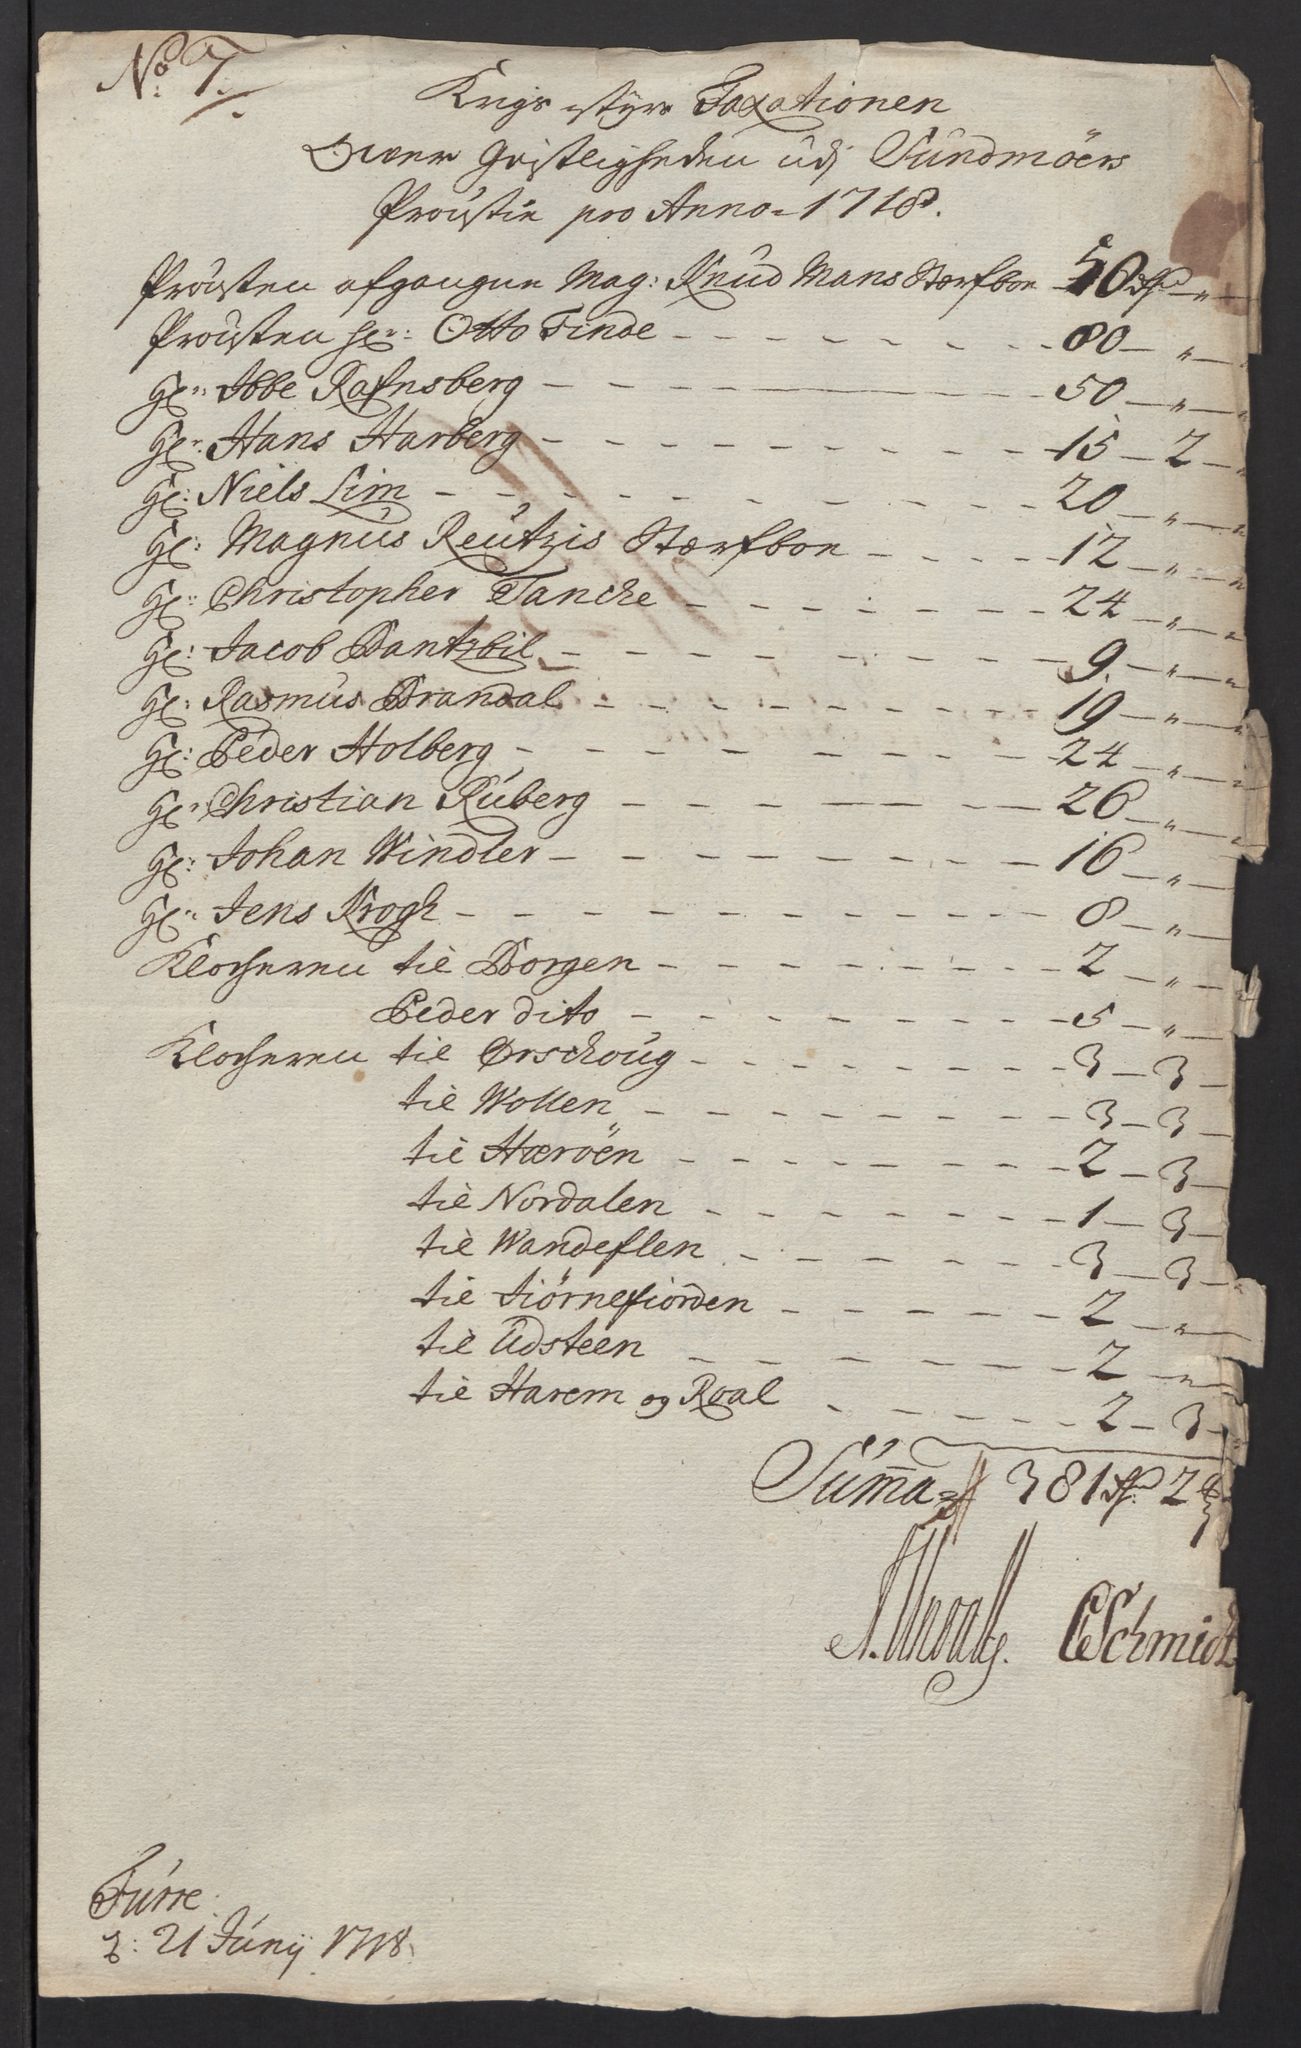 No. 7.
Krigs styrs Taxationen
Over Geistligheden udj Sundmöers
Proustie pro Anno 1718.
Prousten afgangne Mag: Knud Mans Stærfboe 50 rdr "
Prousten Hr: Otto Finde - - - 80 — " —
Hr: Ibbe Rafnsberg - - - 50 — " —
Hr: Hans Harberg - - - 15 — 2 —
Hr: Niels Lim - - - 20 — " —
Hr: Magnus Reutzis Stærfboe - - - 12 — " —
Hr: Christopher Tancke - - - 24 — " —
Hr: Jacob Dantzbil - - - 9 — " —
Hr: Rasmus Brandal - - - 19 — " —
Hr: Peder Holberg - - - 24 — " —
Hr: Christian Ruberg - - - 26 — " —
Hr: Johan Windler - - - 16 — " —
Hr: Jens Krogh - - - 8 — " —
Klocheren til Borgen - - - 2 — " —
Peder dito - - - 5 — " —
Klocheren til Ørschoug - - - 3 — 3 —
til Wollen - - - 3 — 3 —
til Hæröen - - - 2 — 3 —
til Nordalen - - - 1 — 3 —
til Wandeflen - - - 3 — 3 —
til Jiörnefiorden - - - 2 — " —
til Udsteen - - - 2 — " —
til Harem og Roal - - - 2 — 3 —
Suma 381 rdr 2
CSchmidt
Furre
d: 21 Junij 1718.